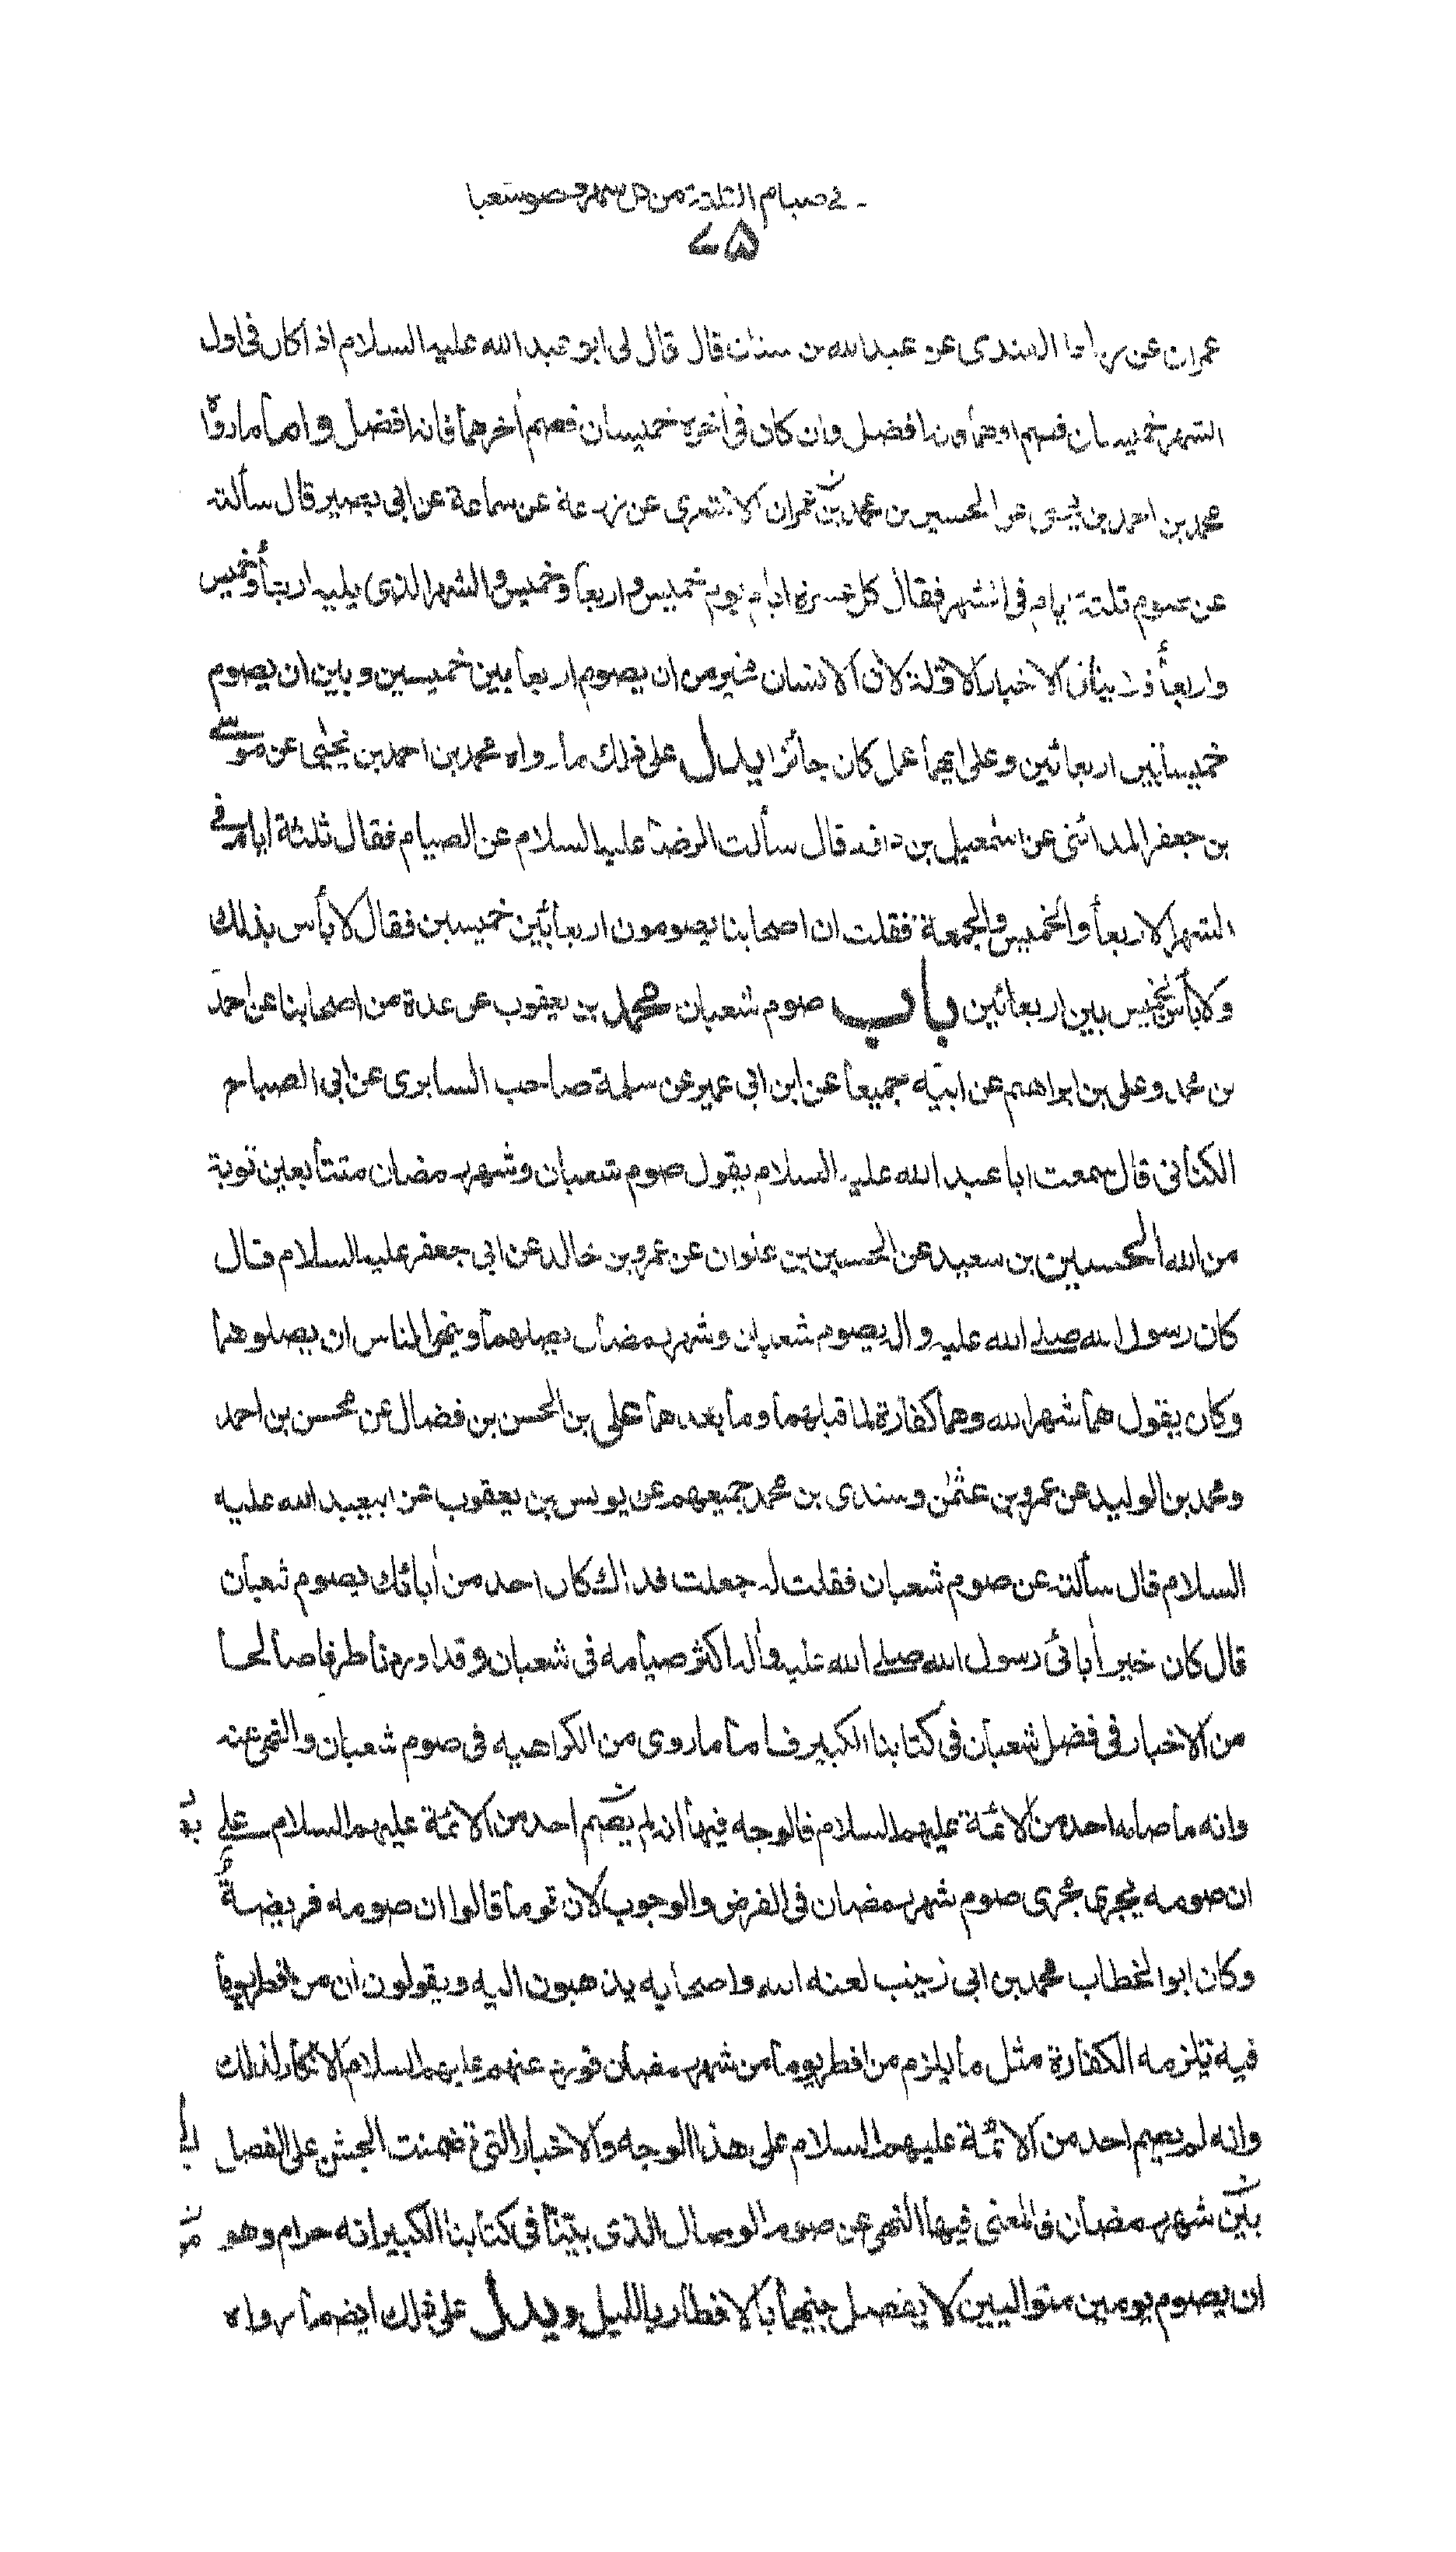 في صيام الثلثة من كل شهر وصوم شعبا
٧٥
عمران عن زياد القندى عن عبدالله بن سنان قال قال لى ابو عبد الله عليه السلام اذا كان فى اول
الشهر خميسان فصم اولهما فانه افضل وان كان فى أخره خميسان فصم أخرهما فانه افضل واما ما رواه
محمد بن احمد بن يحيى عن الحسين بن محمد بن عمران الاشعرى عن زرعة عن سماعة عن ابى بصير قال سألته
عن صوم ثلثة ايام فى الشهر فقال كل عشرة ايام يوم خميس واربعا وخميس والشهر الذى يليه اربعا وخميس
واربعا فلا ينافى الاخبار الاولة لان الانسان مخير من ان يصوم اربعا بين خميسين وبين ان يصوم
خميسا بين اربعائين وعلى ايهما عمل كان جائزا يدل على ذلك ما رواه محمد بن احمد بن يحيى عن موسى
بن جعفر المدائنى عن اسمعيل بن داود قال سألت الرضا عليه السلام عن الصيام فقال ثلثة ايام فى
الشهر الاربعا والخميس والجمعة فقلت ان اصحابنا يصومون اربعا بين خميسين فقال لا بأس بذلك
ولا بأس بخميس بين اربعائين باب صوم شعبان محمد بن يعقوب عن عدة من اصحابنا عن احمد
بن محمد وعلى بن ابراهيم عن ابيه جميعا عن ابن ابى عمير عن سلمة صاحب السابرى عن ابى الصباح
الكنانى قال سمعت ابا عبد الله عليه السلام يقول صوم شعبان وشهر رمضان متتابعين توبة
من الله الحسين بن سعيد عن الحسين بن علوان عن عمرو بن خالد عن ابى جعفر عليه السلام قال
كان رسول الله صلى الله عليه واله يصوم شعبان وشهر رمضان يصلهما وينهى الناس ان يصلوهما
وكان يقول هما شهر الله وهما كفارة لما قبلهما وما بعدهما على بن الحسن بن فضال عن محسن بن احمد
ومحمد بن الوليد عن عمرو بن عثمن وسندى بن محمد جميعهم عن يونس بن يعقوب عن ابيعبد الله عليه
السلام قال سألته عن صوم شعبان فقلت له جعلت فداك كان احد من أبائك يصوم شعبان
قال كان خير أبائى رسول الله صلى الله عليه وأله اكثر صيامه فى شعبان وقد اوردنا طرفا صالحا
من الاخبار فى فضل شعبان فى كتابنا الكبير فاما ما روى من الكراهيه فى صوم شعبان والنهى عنه
وانه ما صامه احد من الائمة عليهم السلام فالوجه فيها انه لم يصم احد من الائمة عليهم السلام على
ان صومه يجرى مجرى صوم شهر رمضان فى الفرض والوجوب لان قوما قالوا ان صومه فريضة
وكان ابو الخطاب محمد بن ابى زينب لعنه الله واصحابه يذهبون اليه ويقولون ان من افطر يوما
فيه تلزمه الكفارة مثل ما يلزم من افطر يوما من شهر رمضان فورد عنهم عليهم السلام الانكار لذلك
وانه لم يصم احد من الائمة عليهم السلام على هذا الوجه والاخبار التى تضمنت الحث على الفصل
بين شهر رمضان فالمعنى فيها النهى عن صوم الوصال الذى بينا فى كتابنا الكبير انه حرام وهو
ان يصوم يومين متواليين لا يفصل بينهما بالافطار بالليل ويدل على ذلك ايضا ما رواه